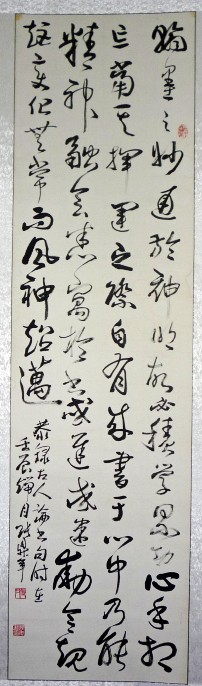 翰墨之妙通於神明故必積學累功心手相
忘當其揮運之際自有成書于心中乃能
精神融會悉寓於書或遲或速動合規
矩變化無常而風神超邁
恭錄古人論書句時在
壬辰